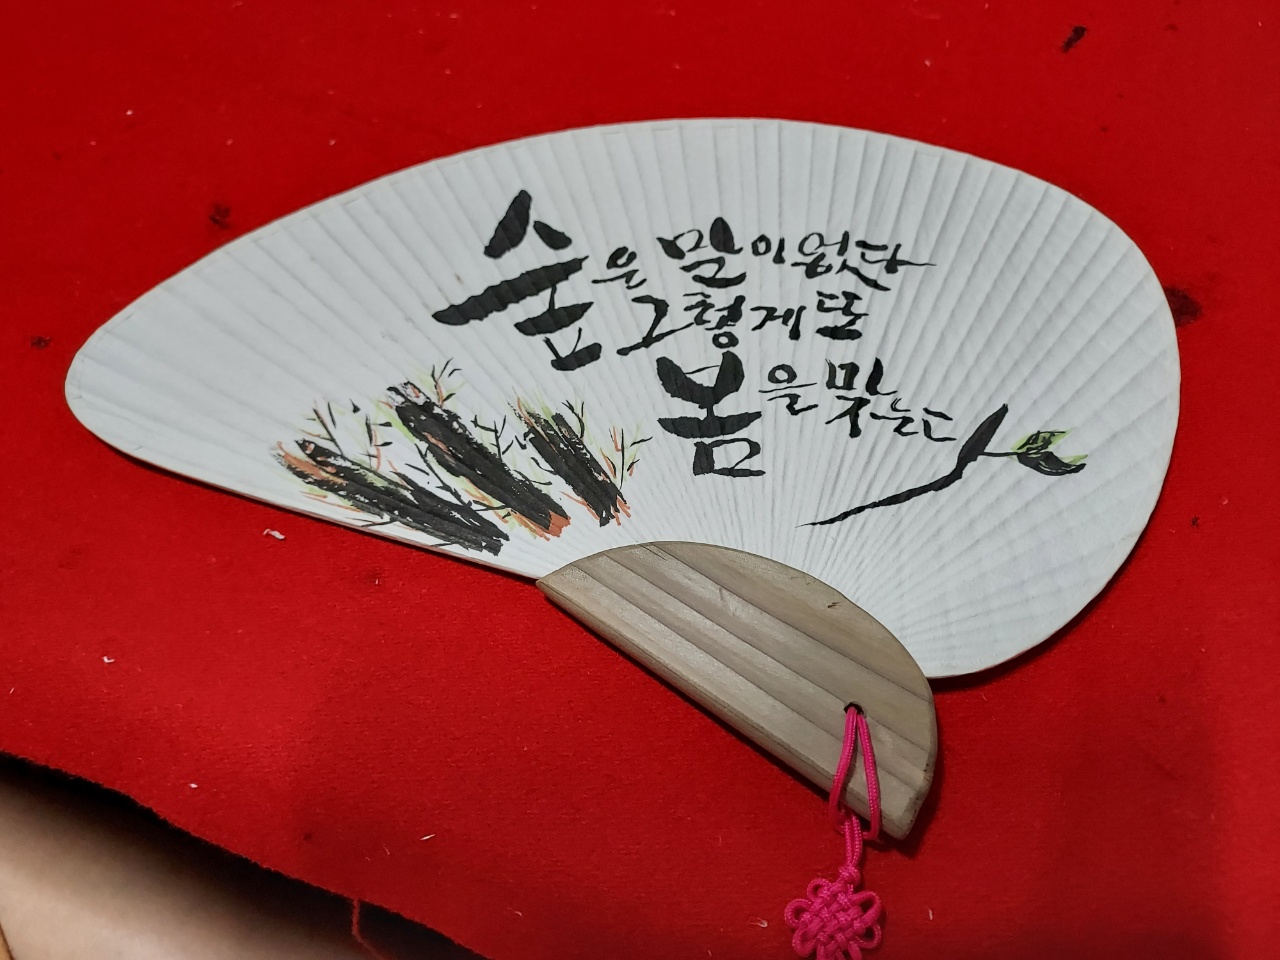 숲은 말이 없다
그렇게 또
봄을 맞는다